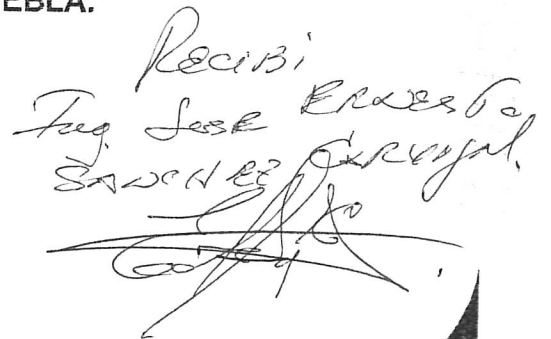 EBLA.
Recibi
Ing. Jose Ernesto
Sanchez Carvajal.